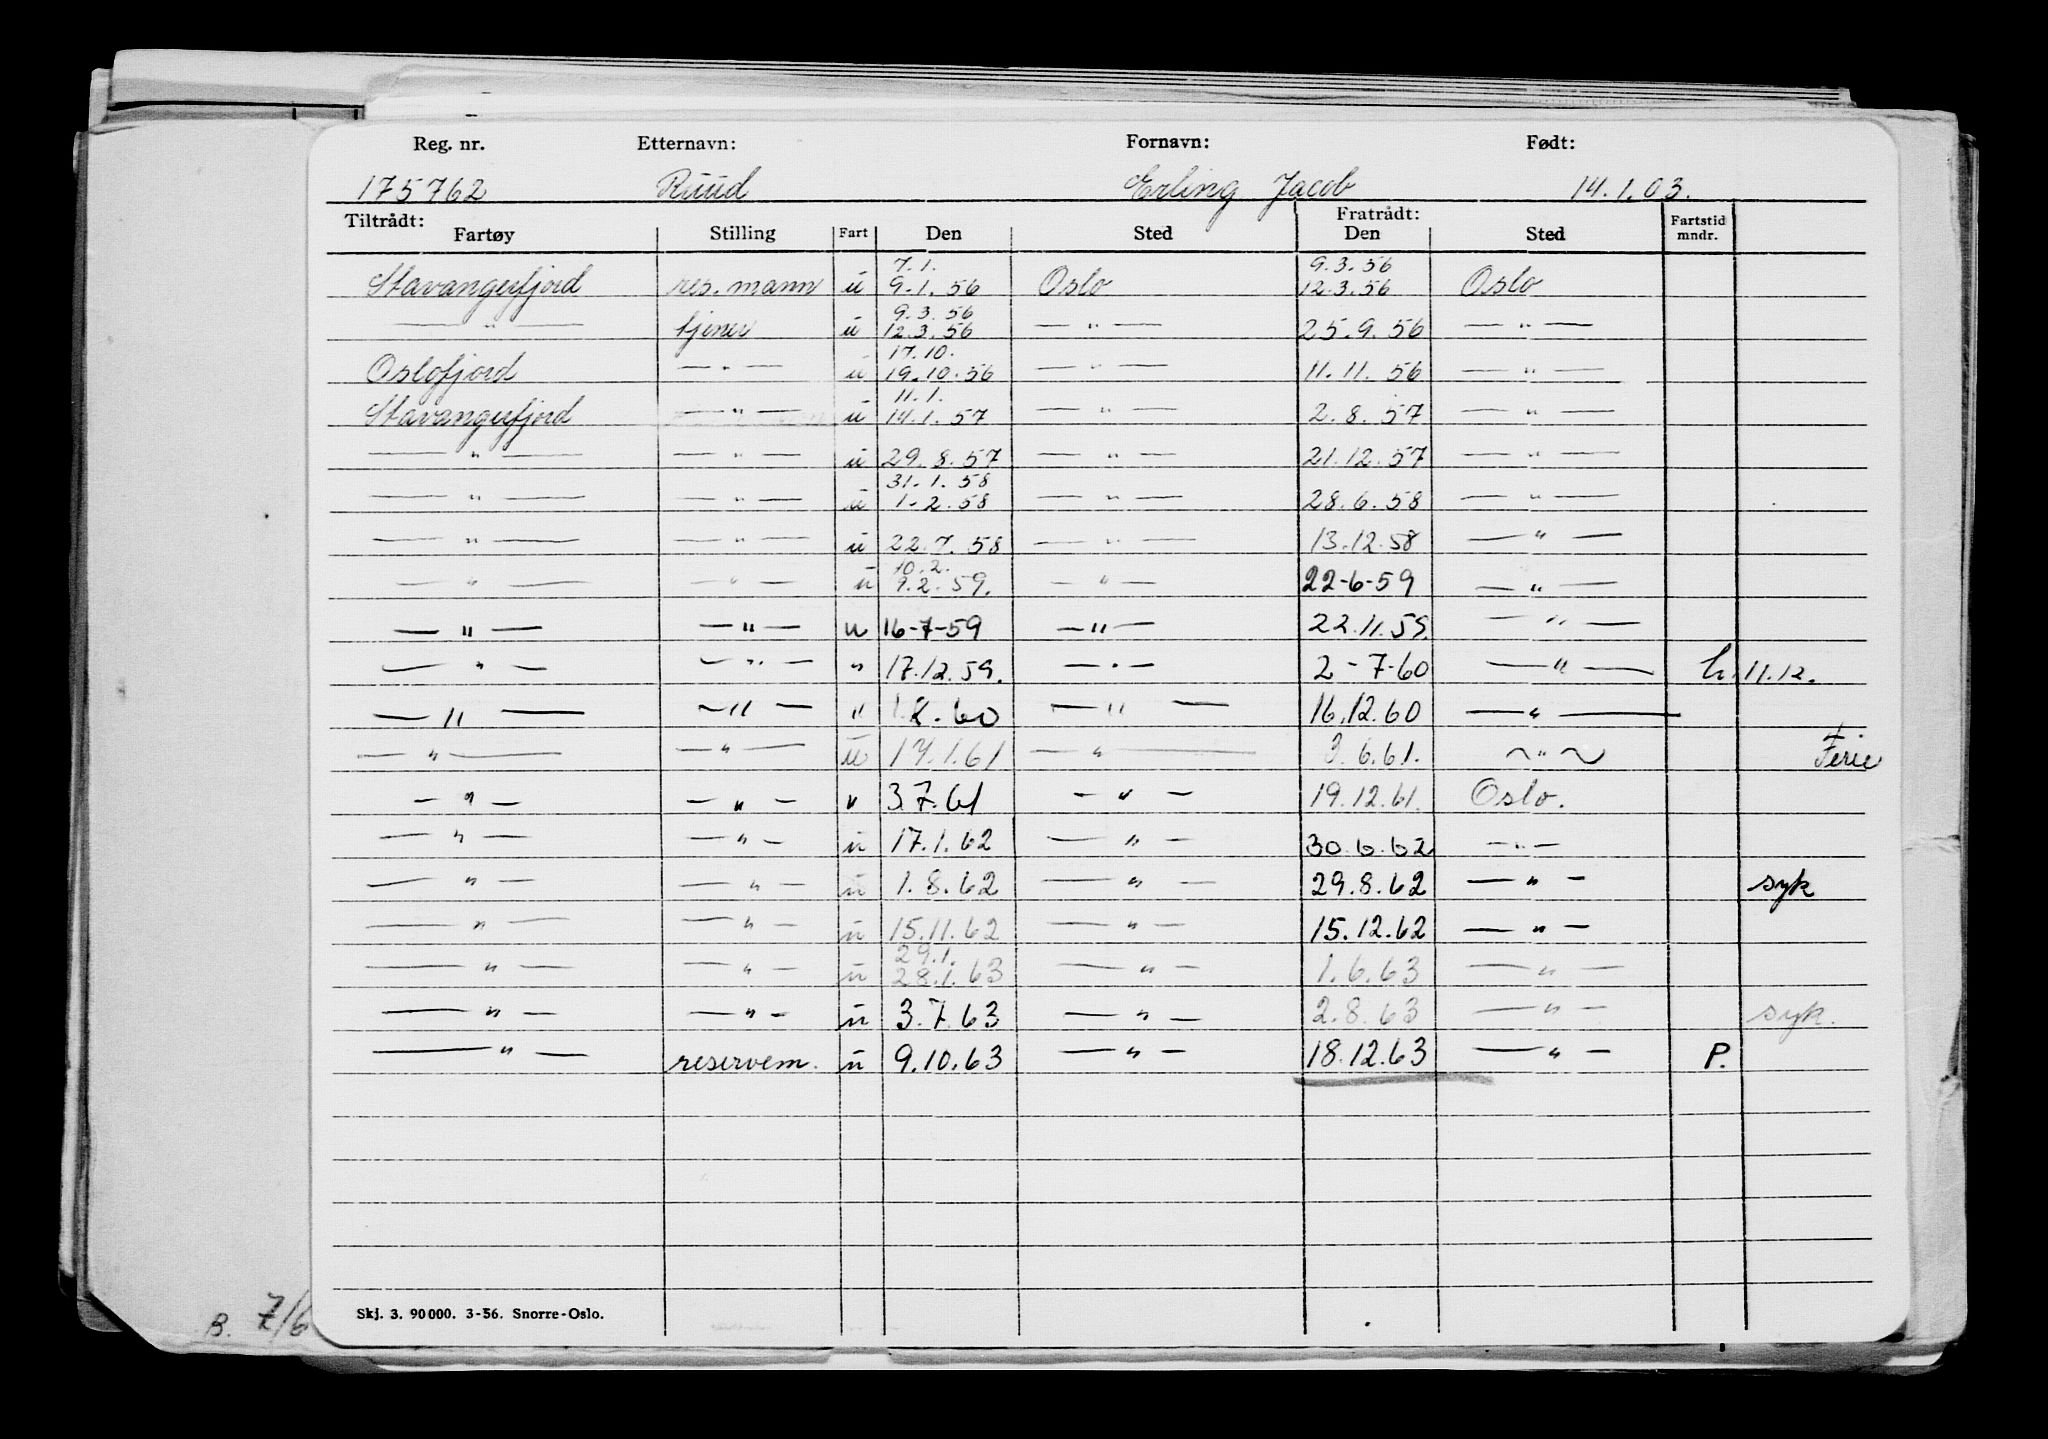 Reg. nr. Etternavn: Fornavn: Født:
175762 Ruud Erling Jacob 14.1.03.
Tiltrådt: Fratrådt:
Fartøy Stilling Fart Den Sted Den Sted Fartstid mndr.
7.1. 9.3.56
Stavangerfjord res. mann u 9.1.56 Oslo 12.3.56 Oslo
9.3.56
— " — tjener u 12.3.56 — " — 25.9.56 — " —
17.10.
Oslofjord — " — u 19.10.56 — " — 11.11.56 — " —
11.1.
Stavangerfjord — " — u 14.1.57 — " — 2.8.57 — " —
— " — — " — u 29.8.57 — " — 21.12.57 — " —
31.1.58
— " — — " — u 1-2.58 — " — 28.6.58 — " —
— " — — " — u 22.7.58 — " — 13.12.58 — " —
10.2.
— " — — " — u 9.2.59. — " — 22-6-59 — " —
— " — — " — u 16-7-59 — " — 22.11.59. — " —
— " — — " — " 17.12.59. — " — 2-7-60 — " — 11.12.
— " — — " — " 1.8.60 — " — 16.12.60 — " —
— " — — " — u 17.1.61 — " — 3.6.61. — " — Ferie
— " — — " — " 3.7.61 — " — 19.12.61. Oslo.
— " — — " — u 17.1.62 — " — 30.6.62 — " —
— " — — " — u 1.8.62 — " — 29.8.62 — " — syk
— " — — " — u 15.11.62 — " — 15.12.62 — " —
29.1.
— " — — " — u 28.1.63 — " — 1.6.63 — " —
— " — — " — u 3.7.63 — " — 2.8.63 — " — syk.
— " — reservem. u 9.10.63 — " — 18.12.63 — " — P.
Skj. 3. 90000. 3-56. Snorre-Oslo.
B. 7/6